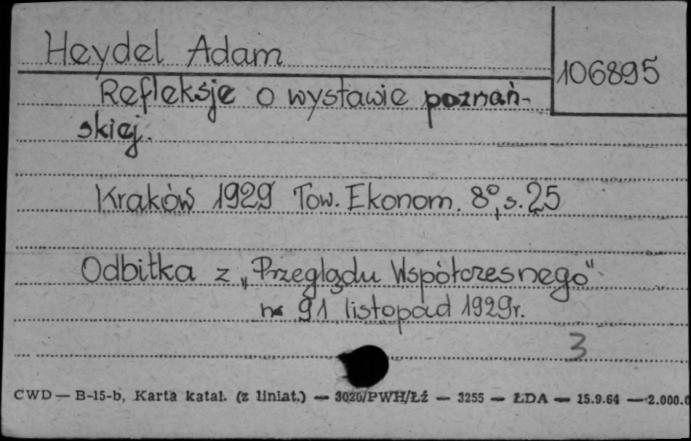 Heydel Adam
106895
Refleksje o wystawie poznań-
skiej.
Kraków 1929 Tow. Ekonom. 8°, s. 25
Odbitka z „Przeglądu Współczesnego"
nr 91 listopad 1929r.
3
CWD — B-15-b, Karta katal. (z liniat.) — 3020/PWH/Łź — 3255 — ŁDA — 15.9.64 — 2.000.0